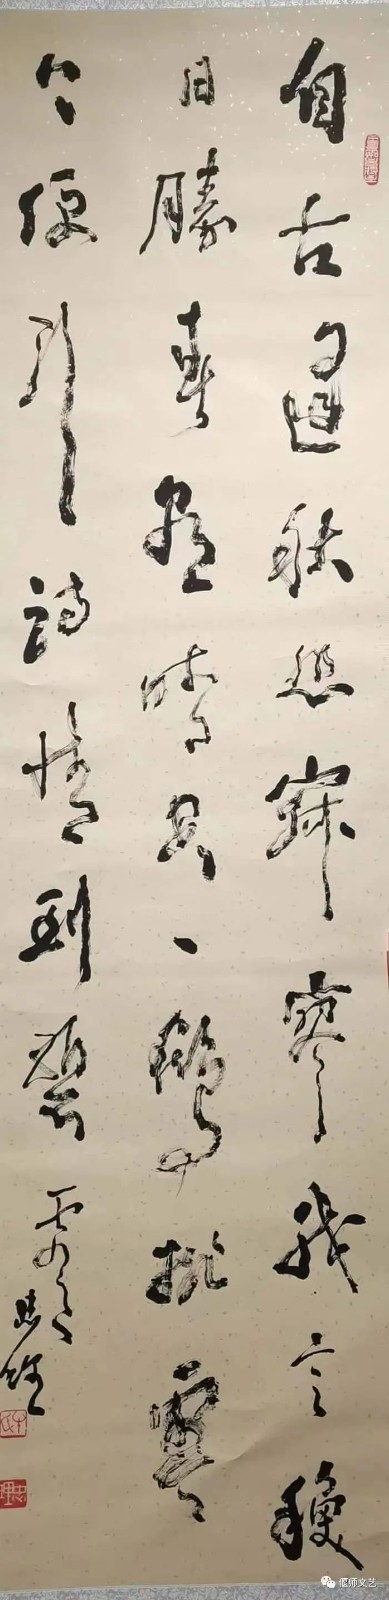 自古逢秋悲寂寥我言秋
日勝春朝晴空一鶴排雲
上便引詩情到碧霄
偃师文艺